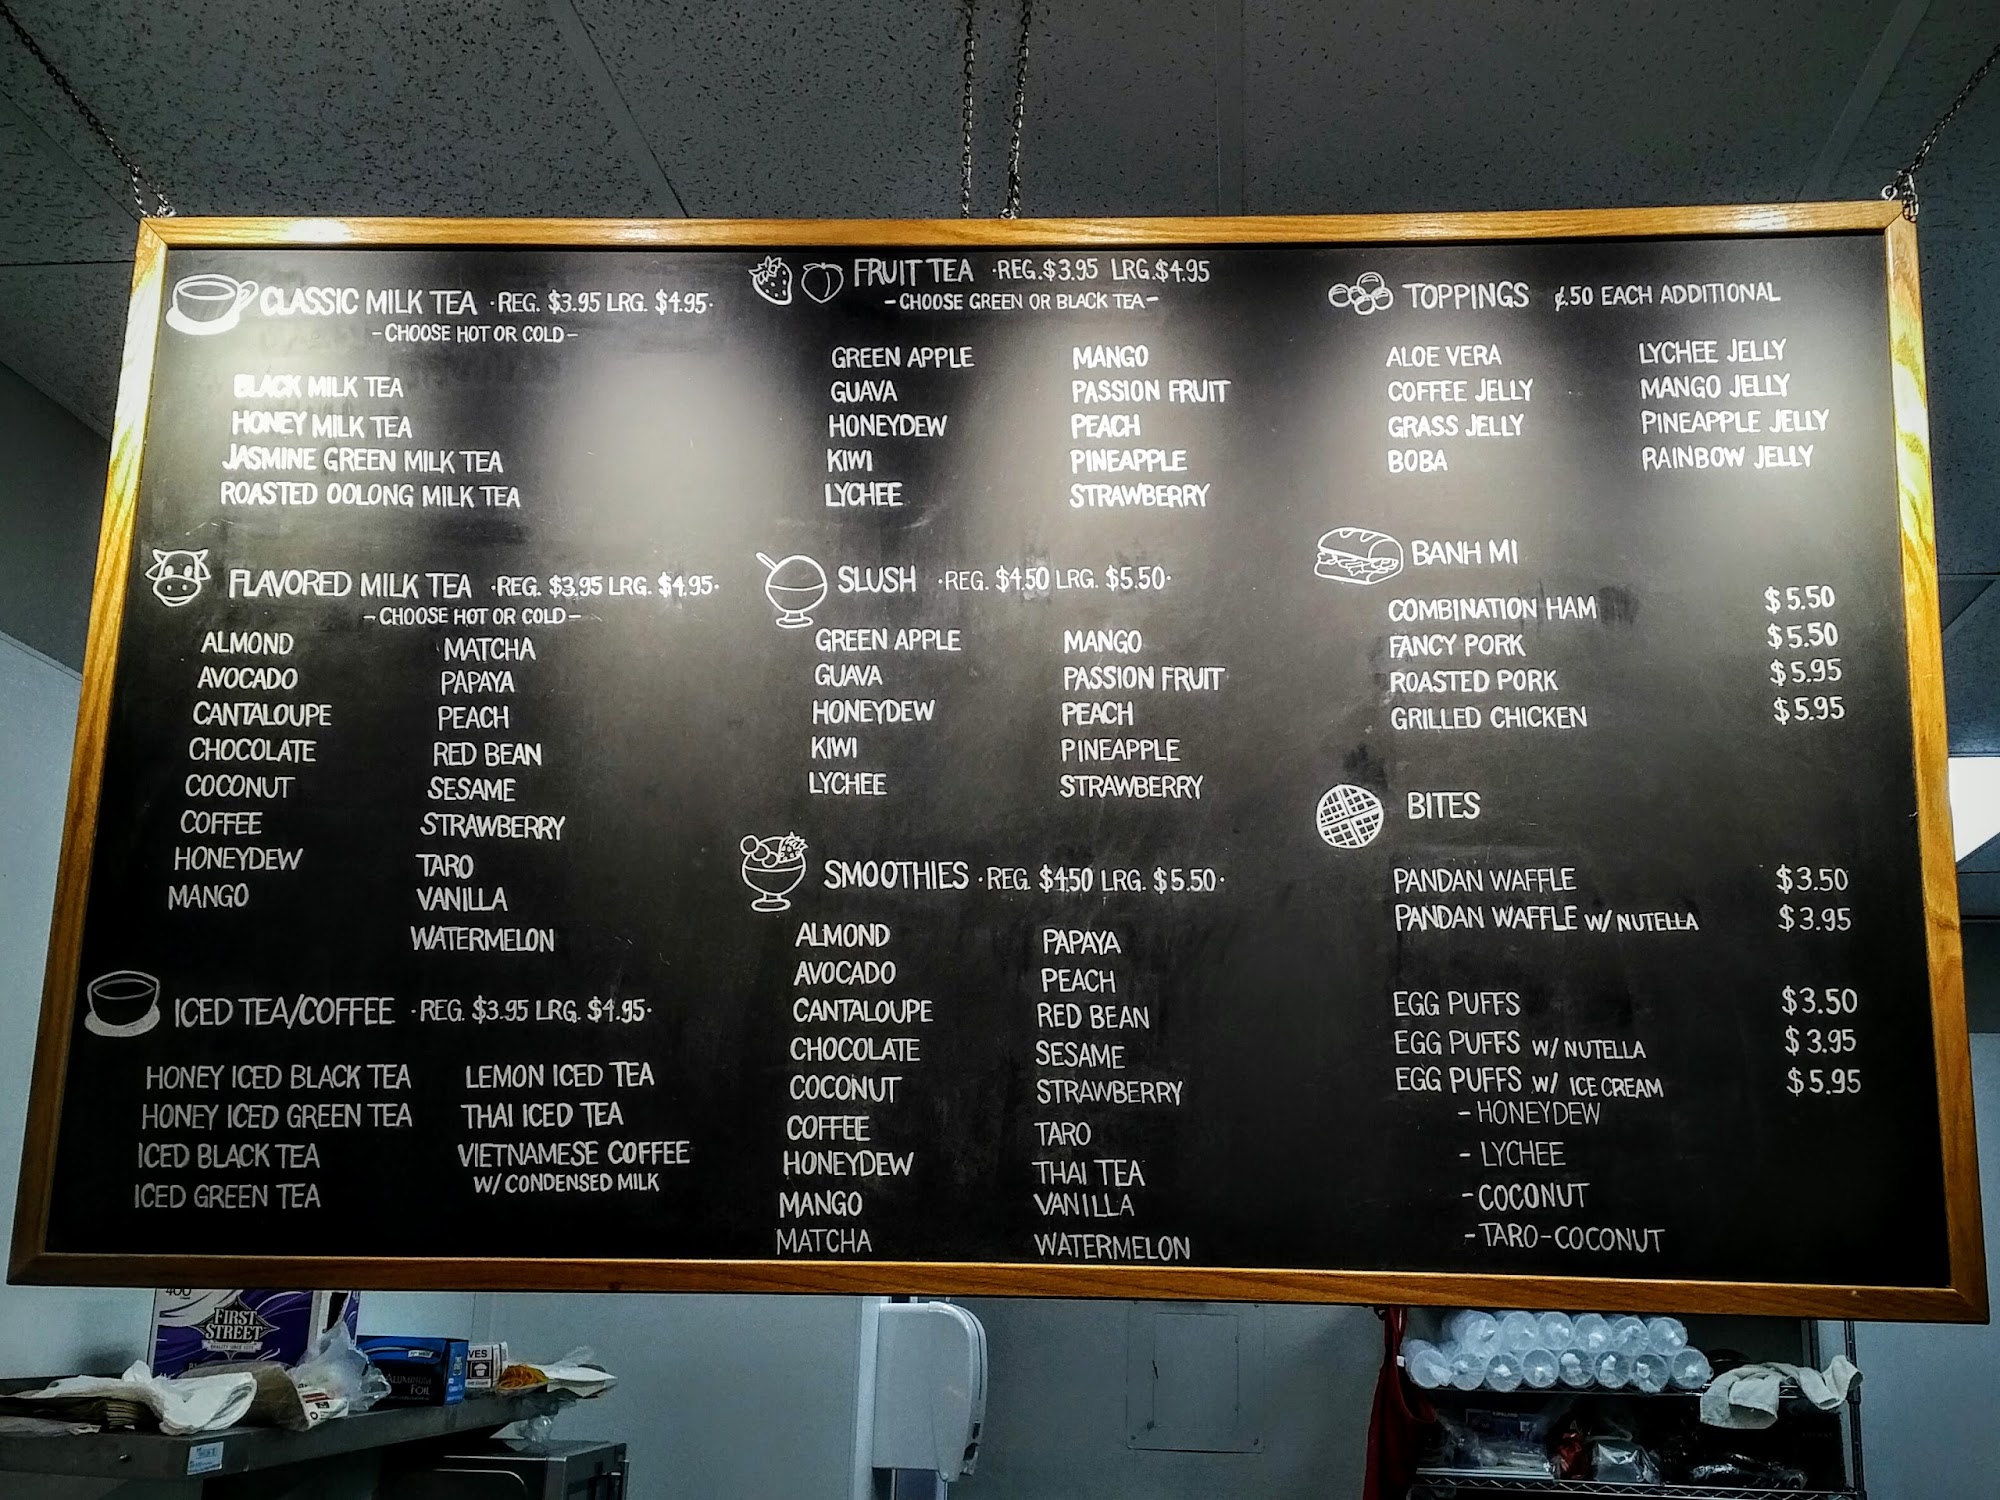 CLASSIC MILK TEA ·REG. $3.95 LRG. $4.95·
-CHOOSE HOT OR COLD-
BLACK MILK TEA
HONEY MILK TEA
JASMINE GREEN MILK TEA
ROASTED OOLONG MILK TEA
FLAVORED MILK TEA ·REG. $3.95 LRG. $4.95·
-CHOOSE HOT OR COLD-
ALMOND
AVOCADO
CANTALOUPE
CHOCOLATE
COCONUT
COFFEE
HONEYDEW
MANGO
MATCHA
PAPAYA
PEACH
RED BEAN
SESAME
STRAWBERRY
TARO
VANILLA
WATERMELON
ICED TEA/COFFEE ·REG. $3.95 LRG. $4.95·
HONEY ICED BLACK TEA
HONEY ICED GREEN TEA
ICED BLACK TEA
ICED GREEN TEA
LEMON ICED TEA
THAI ICED TEA
VIETNAMESE COFFEE
W/ CONDENSED MILK
FRUIT TEA ·REG.$3.95 LRG.$4.95
-CHOOSE GREEN OR BLACK TEA-
GREEN APPLE
GUAVA
HONEYDEW
KIWI
LYCHEE
MANGO
PASSION FRUIT
PEACH
PINEAPPLE
STRAWBERRY
SLUSH ·REG. $4.50 LRG. $5.50·
GREEN APPLE
GUAVA
HONEYDEW
KIWI
LYCHEE
MANGO
PASSION FRUIT
PEACH
PINEAPPLE
STRAWBERRY
SMOOTHIES ·REG. $4.50 LRG. $5.50·
ALMOND
AVOCADO
CANTALOUPE
CHOCOLATE
COCONUT
COFFEE
HONEYDEW
MANGO
MATCHA
PAPAYA
PEACH
RED BEAN
SESAME
STRAWBERRY
TARO
THAI TEA
VANILLA
WATERMELON
TOPPINGS ¢.50 EACH ADDITIONAL
ALOE VERA
COFFEE JELLY
GRASS JELLY
BOBA
LYCHEE JELLY
MANGO JELLY
PINEAPPLE JELLY
RAINBOW JELLY
BANH MI
COMBINATION HAM $5.50
FANCY PORK $5.50
ROASTED PORK $5.95
GRILLED CHICKEN $5.95
BITES
PANDAN WAFFLE $3.50
PANDAN WAFFLE W/ NUTELLA $3.95
EGG PUFFS $3.50
EGG PUFFS W/ NUTELLA $3.95
EGG PUFFS W/ ICE CREAM $5.95
- HONEYDEW
- LYCHEE
- COCONUT
- TARO-COCONUT
400
FIRST
STREET
ALUMINUM
FOIL
VES